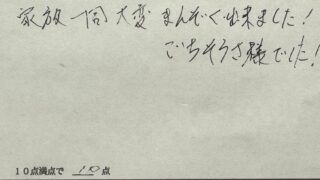 家族一同大変まんぞく出来ました!
ごちそうさ様でした!
10点満点で 10 点